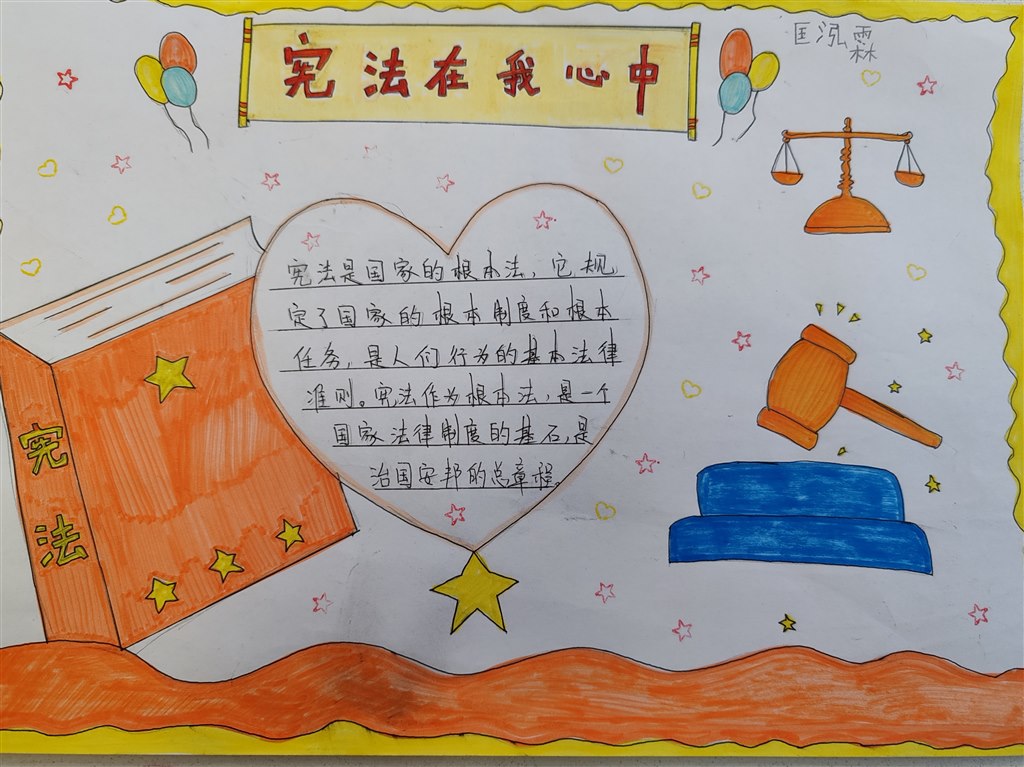 宪法在我心中
匡泓霖
宪法是国家的根本法，它规
定了国家的根本制度和根本
任务，是人们行为的基本法律
准则。宪法作为根本法，是一个
国家法律制度的基石，是
治国安邦的总章程。
宪法